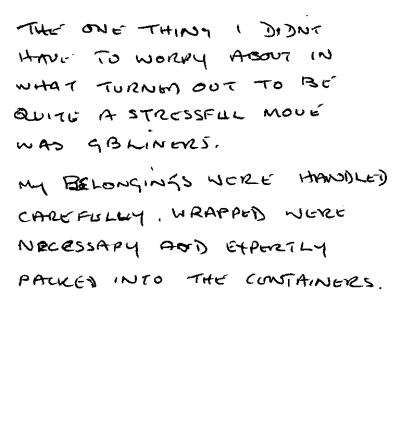 THE ONE THING I DIDNT
HAVE TO WORRY ABOUT IN
WHAT TURNED OUT TO BE
QUITE A STRESSFUL MOVE
WAS GBLINERS.
MY BELONGINGS WERE HANDLED
CAREFULLY. WRAPPED WERE
NECESSARY AND EXPERTLY
PACKED INTO THE CONTAINERS.